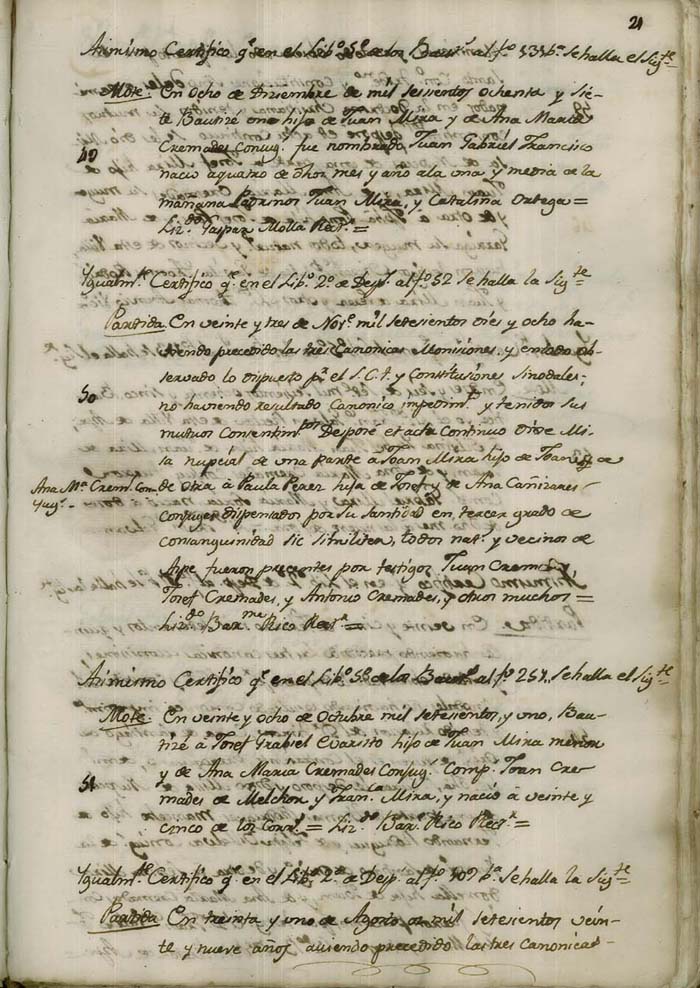 21
Asimismo Certifico q.e en el Lib.o 5.o de los Baut.s al f.o 331 b.a Se halla el Sig.te
Mote. En Ocho de Diziembre de mil seiscientos ochenta y Sie-
te Bautizé a hijo de Juan Mira y de Ana Maria
49 Cremades Conyug.s fue nombrado Juan Gabriel Francisco
nacio a quatro de dhos mes y año a la una y media de la
mañana Padrinos Juan Mira, y Catalina Ortega =
Liz.do Gaspar Molla Rec.r =
Igualm.te Certifico q.e en el Lib.o 2.o de Desp.s al f.o 52 Se halla la Sig.te
Partida. En veinte y tres de Nov.e mil setesientos dies y ocho ha-
viendo precedido las tres Canonicas Monisiones, y en todo ob-
servado lo dispuesto p.r el S. C. T. y Constitusiones Sinodales;
50 no haviendo resultado Canonico impedim.to y tenidos sus
mutuos Consentim.tos Desposé et acta continuo di Mi-
sa nupcial de una parte à Joan Mira hijo de Joan y de
Ana M.a Crem.s Con-
yug.s
de otra à Paula Perez hija de Josef y de Ana Cañizares
Conyuges dispensados por Su Santidad en tercer grado de
consanguinidad sic similiter, todos nat.s y vecinos de
Aspe fueron precentes por testigos Juan Cremades
Josef Cremades, y Antonio Cremades, y otros muchos =
Liz.do Bar.me Rico Rec.r =
Asimismo Certifico q.e en el Lib.o 5.o de los Baut.s al f.o 257, Se halla el Sig.te
Mote. En veinte y ocho de Octubre mil setesientos, y uno, Bau-
tizé à Josef Grabiel Evaristo hijo de Juan Mira menor
y de Ana Maria Cremades Conyug.s Comp.s Joan Cre-
51 mades de Melchor y Fran.ca Mira, y nacio à veinte y
cinco de los Corr.s = Liz.do Bar.e Rico Rec.r =
Igualm.te Certifico q.e en el Lib.o 2.o de Desp.s al f.o 109 b.a Se halla la Sig.te
Partida En treinta y uno de Agosto de mil setesientos vein-
te y nueve años aviendo precedido las tres Canonicas